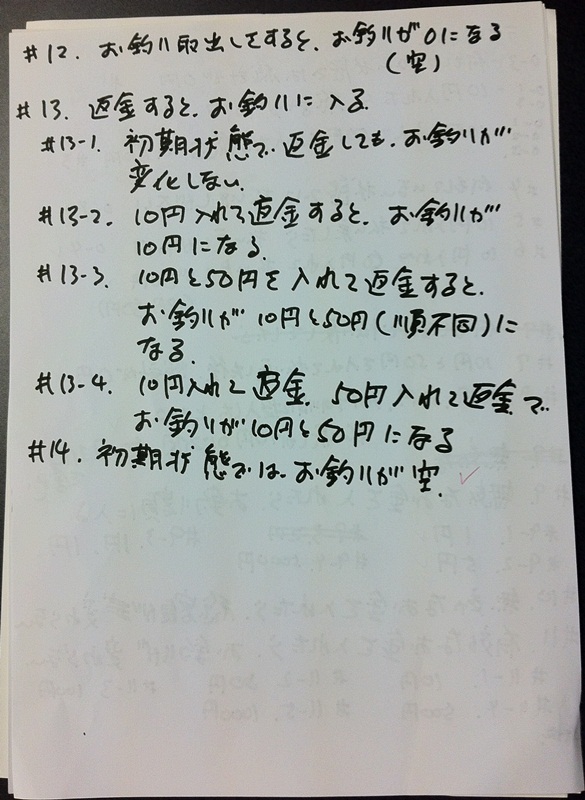 #12. お釣り取出しをすると、お釣りが0になる
(空)
#13. 返金すると、お釣りに入る.
#13-1. 初期状態で、返金しても、お釣りが
変化しない.
#13-2. 10円入れて返金すると、お釣りが
10円になる.
#13-3. 10円と50円を入れて返金すると、
お釣りが 10円と50円(順不同)に
なる.
#13-4. 10円入れて返金、50円入れて返金で、
お釣りが10円と50円になる
#14. 初期状態では、お釣りが空.